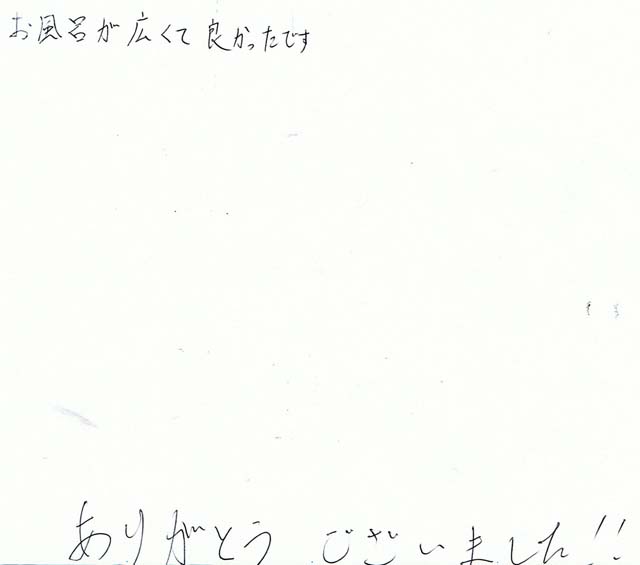 お風呂が広くて良かったです
ありがとうございました!!